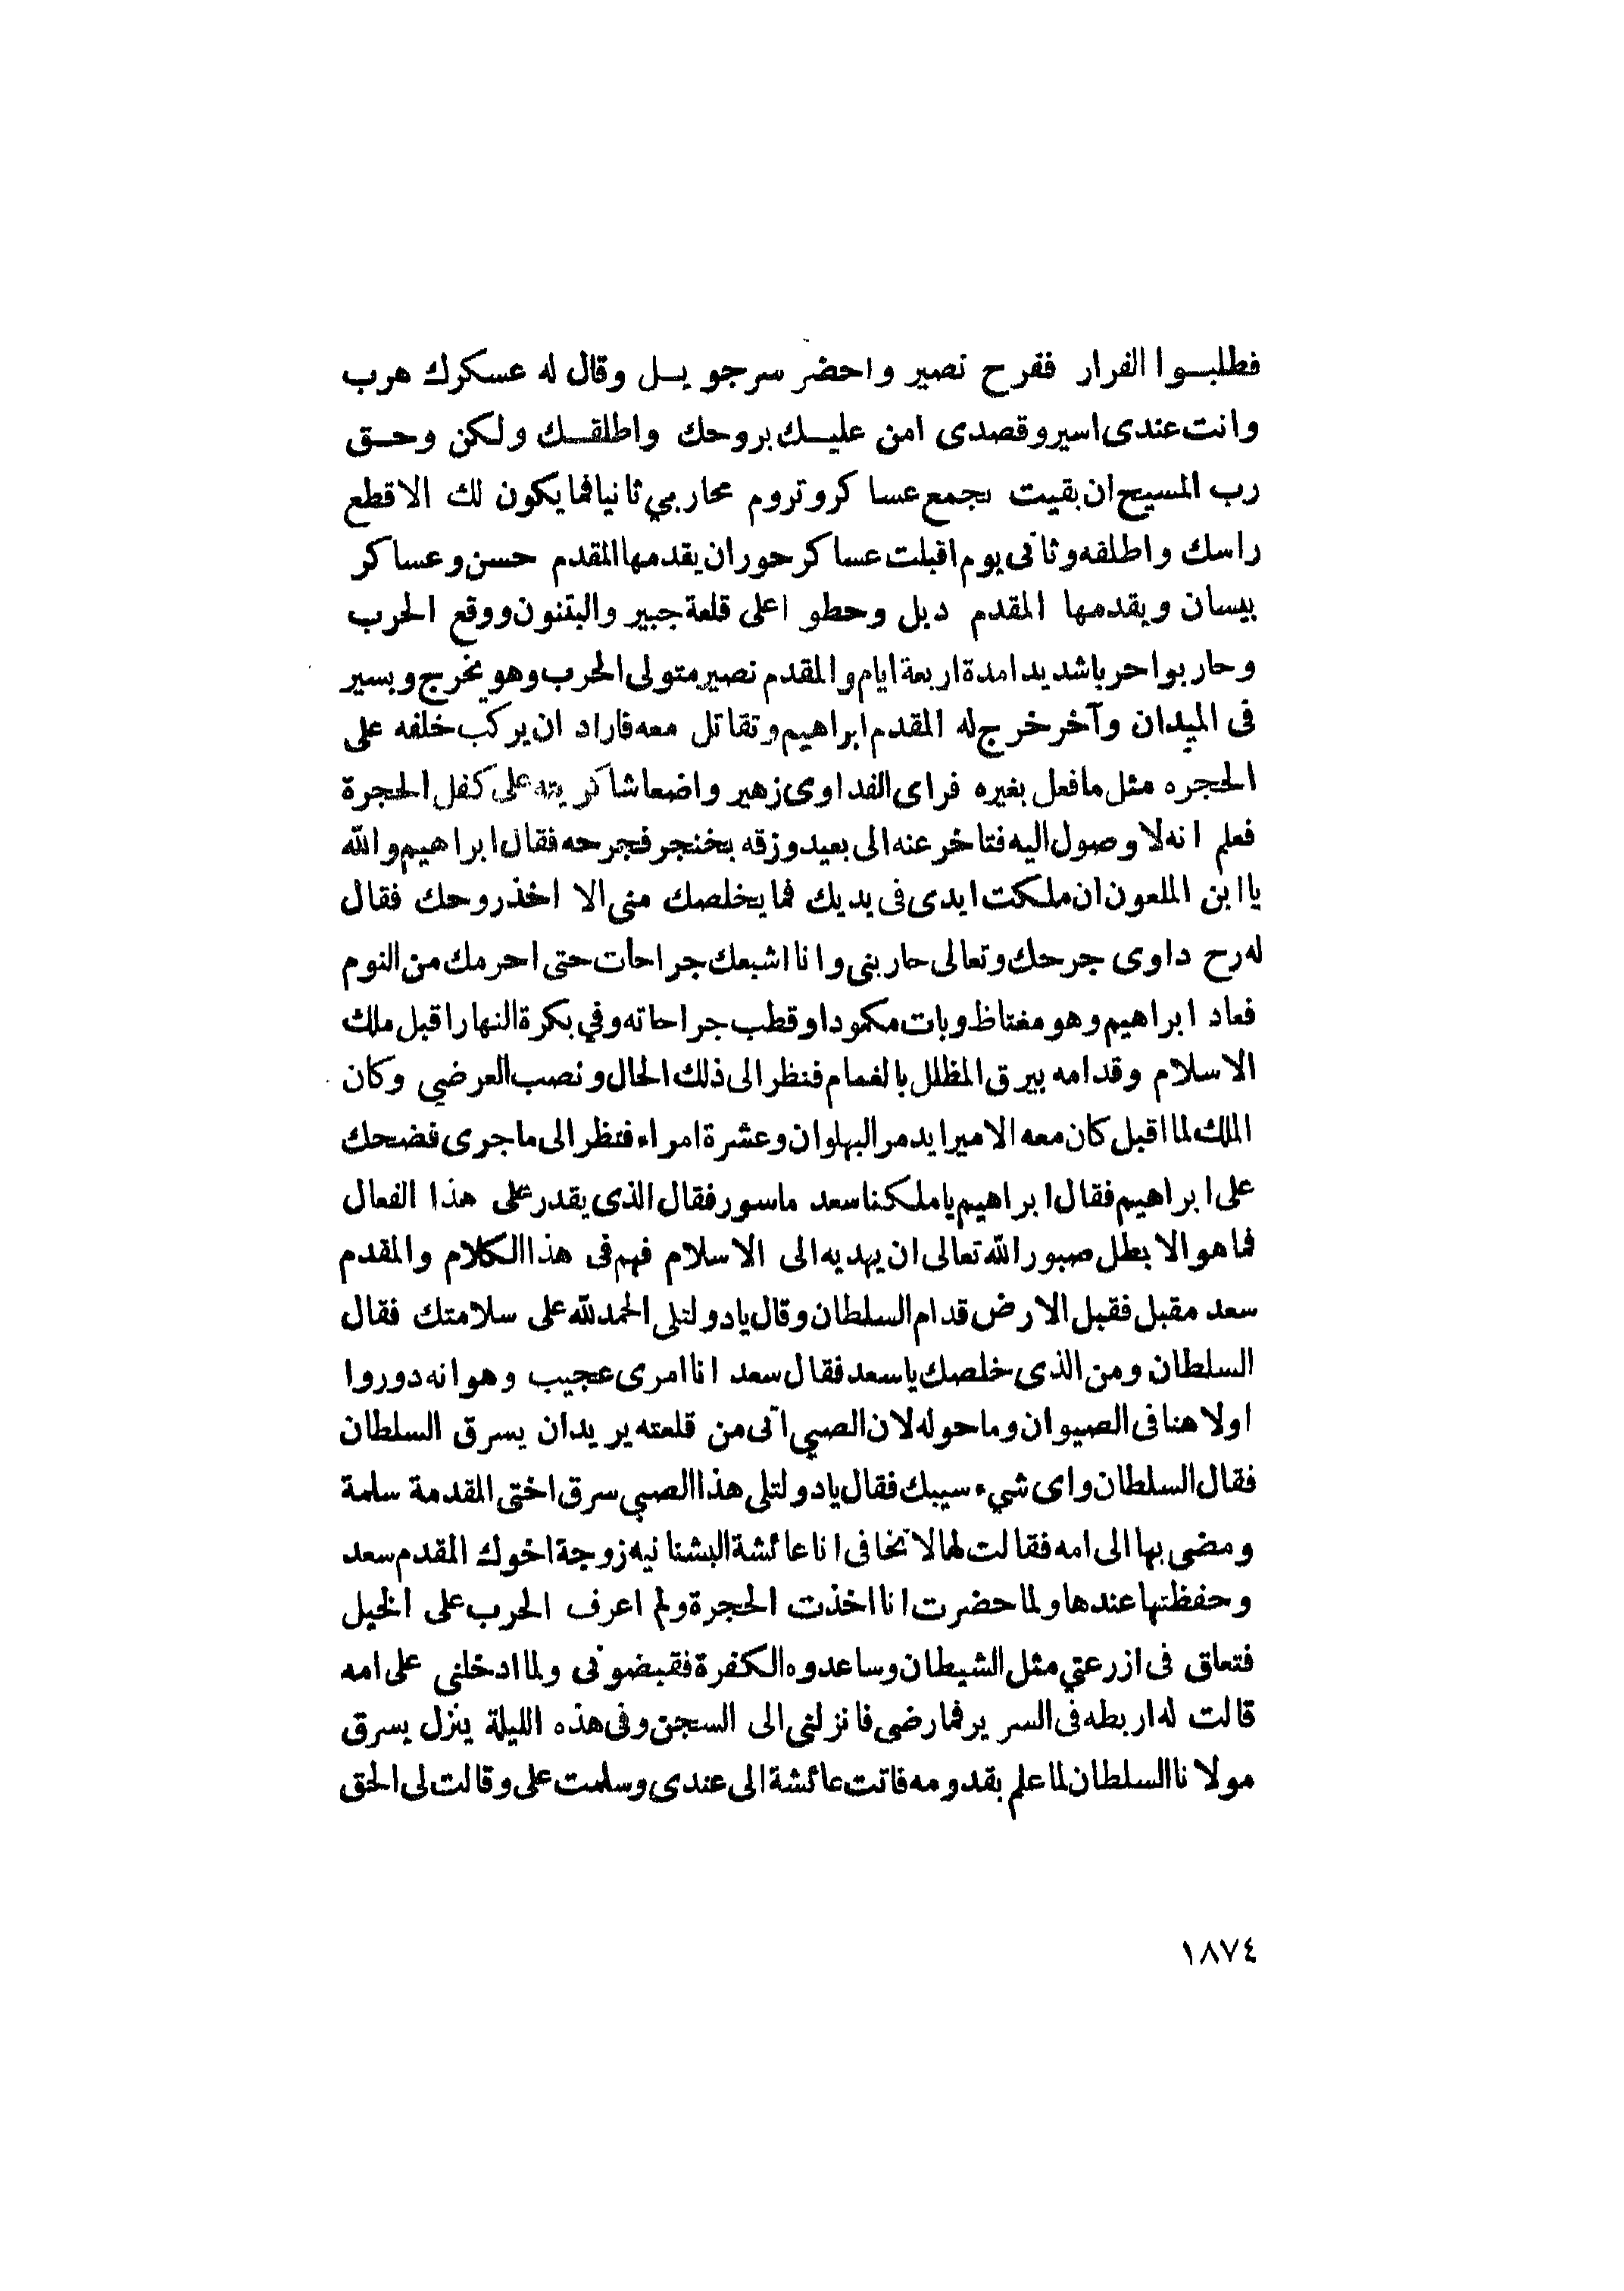 فطلبوا الفرار ففرح نصير واحضر سرجويل وقال له عسكرك هرب
وانت عندى اسير وقصدى امن عليك بروحك واطلقك ولكن وحق
رب المسيح ان بقيت تجمع عساكر وتروم محاربي ثانيا فما يكون لك الا قطع
راسك واطلقه وثانى يوم اقبلت عساكر حوران يقدمها المقدم حسن وعساكر
بيسان ويقدمها المقدم دبل وحطوا على قلعة جبير والبتنون ووقع الحرب
وحاربوا حربا شديدا مدة اربعة ايام والمقدم نصير متولى الحرب وهو يخرج ويسير
فى الميدان وآخر خرج له المقدم ابراهيم وتقاتل معه فاراد ان يركب خلفه على
الحجره مثل مافعل بغيره فراى الفداوى زهير واضعا شاكريته على كفل الحجرة
فعلم انه لا وصول اليه فتاخر عنه الى بعيد وزقه بخنجر فجرحه فقال ابراهيم والله
يا ابن الملعون ان ملكت ايدى فى يديك فما يخلصك منى الا اخذ روحك فقال
له رح داوى جرحك وتعالى حاربنى وانا اشبعك جراحات حتى احرمك من النوم
فعاد ابراهيم وهو مغتاظ وبات مكمودا وقطب جراحاته وفي بكرة النهار اقبل ملك
الاسلام وقدامه بيرق المظلل بالغمام فنظر الى ذلك الحال ونصب العرضي وكان
الملك لما اقبل كان معه الامير ايدمر البهلوان وعشرة امراء فنظر الى ما جرى فضحك
على ابراهيم فقال ابراهيم يا ملكنا سعد ماسور فقال الذى يقدر على هذا الفعال
فما هو الا بطل صبور الله تعالى ان يهديه الى الاسلام فهم فى هذا الكلام والمقدم
سعد مقبل فقبل الارض قدام السلطان وقال يادولتلى الحمد لله على سلامتك فقال
السلطان ومن الذى خلصك ياسعد فقال سعد انا امرى عجيب وهو انه دوروا
اولا هنا فى الصيوان وما حوله لان الصبي اتى من قلعته يريد ان يسرق السلطان
فقال السلطان واى شيء سيبك فقال يادولتلى هذا الصبي سرق اختى المقدمة سلمة
ومضى بها الى امه فقالت لها لا تخافى انا عائشة البشنانيه زوجة اخوك المقدم سعد
وحفظتها عندها ولما حضرت انا اخذت الحجرة ولم اعرف الحرب على الخيل
فتعاق فى ازرعتي مثل الشيطان وساعدوه الكفرة فقبضونى ولما ادخلنى على امه
قالت له اربطه فى السرير فما رضى فانزلنى الى السجن وفى هذه الليلة ينزل يسرق
مولانا السلطان لما علم بقدومه فاتت عائشة الى عندى وسلمت على وقالت لى الحق
١٨٧٤